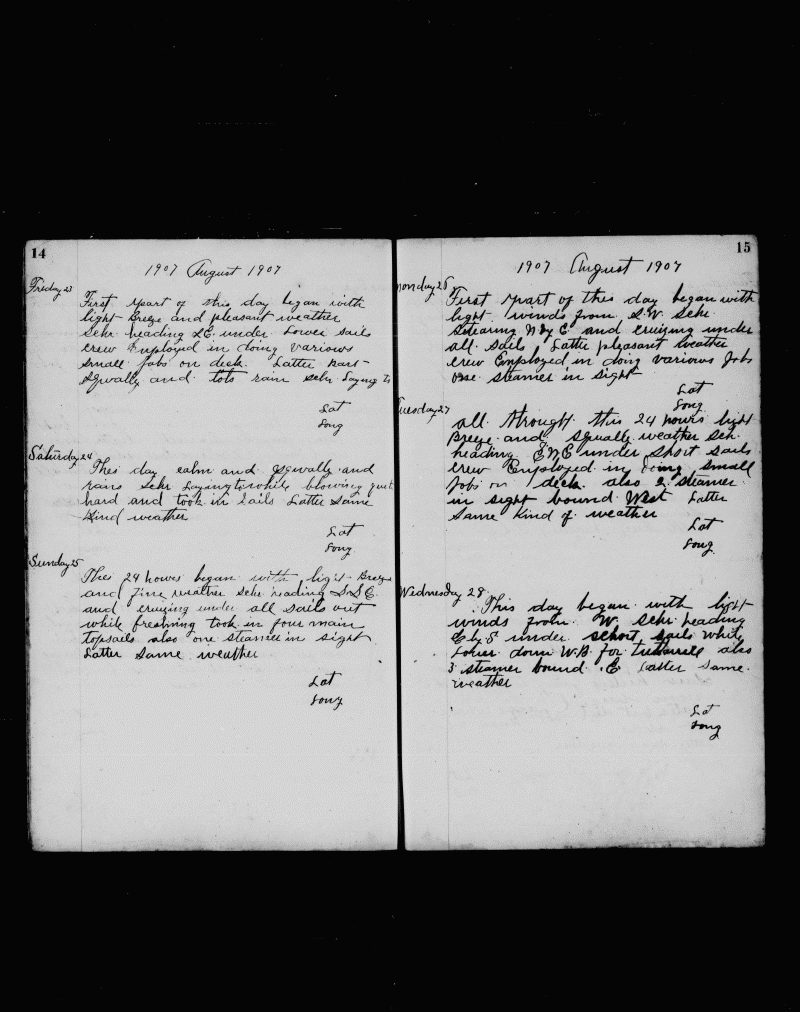 14
1907 August 1907
Friday 23
First part of this day began with
light Breeze and pleasant weather
Schr heading S.E. under Lower sails
crew Employed in doing variows
small Jobs on deck. Latter part
Sqwally and tots rain Schr Laying to
Lat
Long
Saturday 24
Thes day calm and Sqwally and
rains Schr Laying to while blowing
hard and took in Sails Latter Same
Kind weather
Lat
Long
Sunday 25
Thes 24 howrs began with light Breeze
and fine weather Schr heading S.S.E.
and cruizing under all sails out
while freshning took in four main
topsails also one steamer in sight
Latter Same weather
Lat
Long
15
1907 August 1907
Monday 26
First part of this day began with
light winds from S.W. Schr
Stearing W by E and cruizing under
all sails Latter pleasant weather
crew Employed in doing variows Jobs
one steamer in sight
Lat
Long
Tuesday 27
all throught this 24 hours light
Breeze and Squally weather Sch
heading E.N.E under Short Sails
crew Employed in doing small
Jobs on deck also 2 steamer
in sight bound West Latter
Same Kind of weather
Lat
Long
Wednesday 28
This day began with light
winds from W. Schr heading
E by S under schort Sails while
Lower down W.B. for also
3 steamer bound E Latter Same
weather
Lat
Long